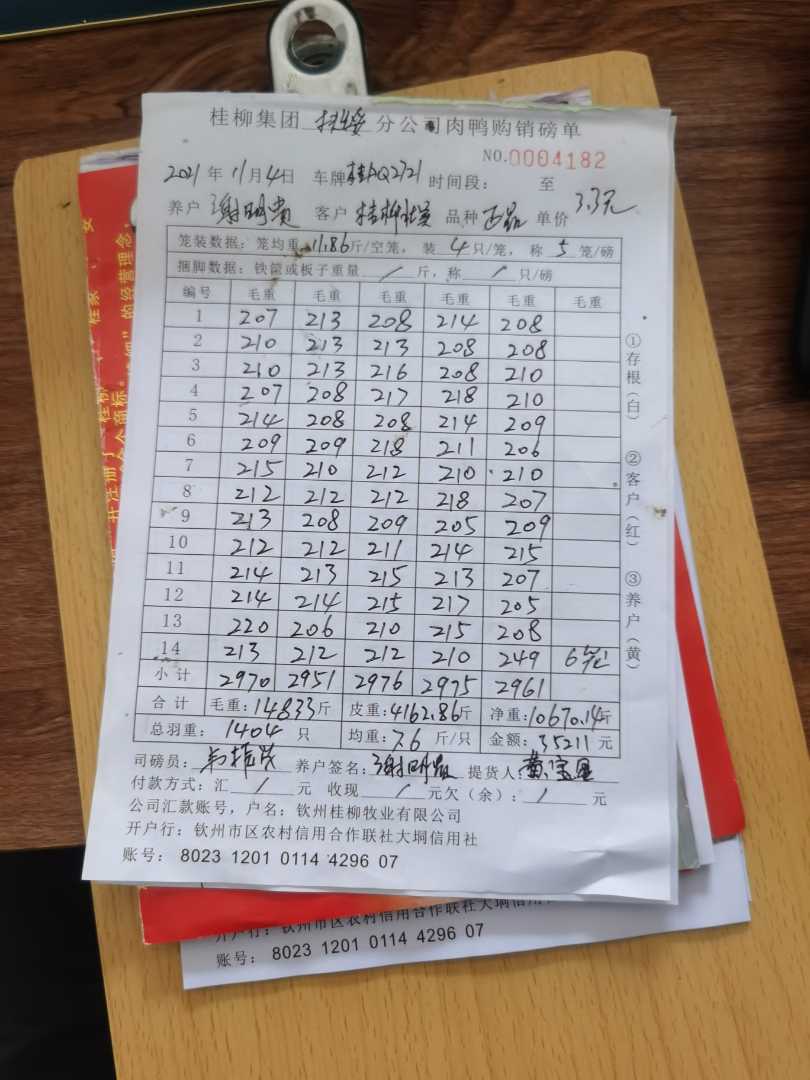 桂柳集团 扶绥 分公司肉鸭购销磅单
NO.0004182
2021年11月4日 车牌桂AQ2721 时间段： 至
养户 谢明贵 客户 桂柳 品种 正品 单价 3.3元
笼装数据：笼均重 11.86斤/空笼，装 4只/笼，称 5 笼/磅
捆脚数据：铁筐或板子重量 / 斤，称 / 只/磅
编号 毛重 毛重 毛重 毛重 毛重 毛重
1 207 213 208 214 208
2 210 213 213 208 208
3 210 213 216 208 210
4 207 208 217 218 210
5 214 208 208 214 209
6 209 209 218 211 206
7 215 210 212 210 210
8 212 212 212 218 207
9 213 208 209 205 209
10 212 212 211 214 215
11 214 213 215 213 207
12 214 214 215 217 205
13 220 206 210 215 208
14 213 212 212 210 249 6笼
小计 2970 2951 2976 2975 2961
合计 毛重：14833斤 皮重：4162.86斤 净重：10670.14斤
总羽重：1404 只 均重：7.6 斤/只 金额：35211 元
司磅员： 养户签名：谢明贵 提货人：黄
付款方式：汇 / 元 收现 / 元欠（余）： / 元
公司汇款账号，户名：钦州桂柳牧业有限公司
开户行：钦州市区农村信用合作联社大垌信用社
账号：8023 1201 0114 4296 07
①存根（白） ②客户（红） ③养户（黄）
开户行：钦州市区农村信用合作联社大垌信用
账号：8023 1201 0114 4296 07